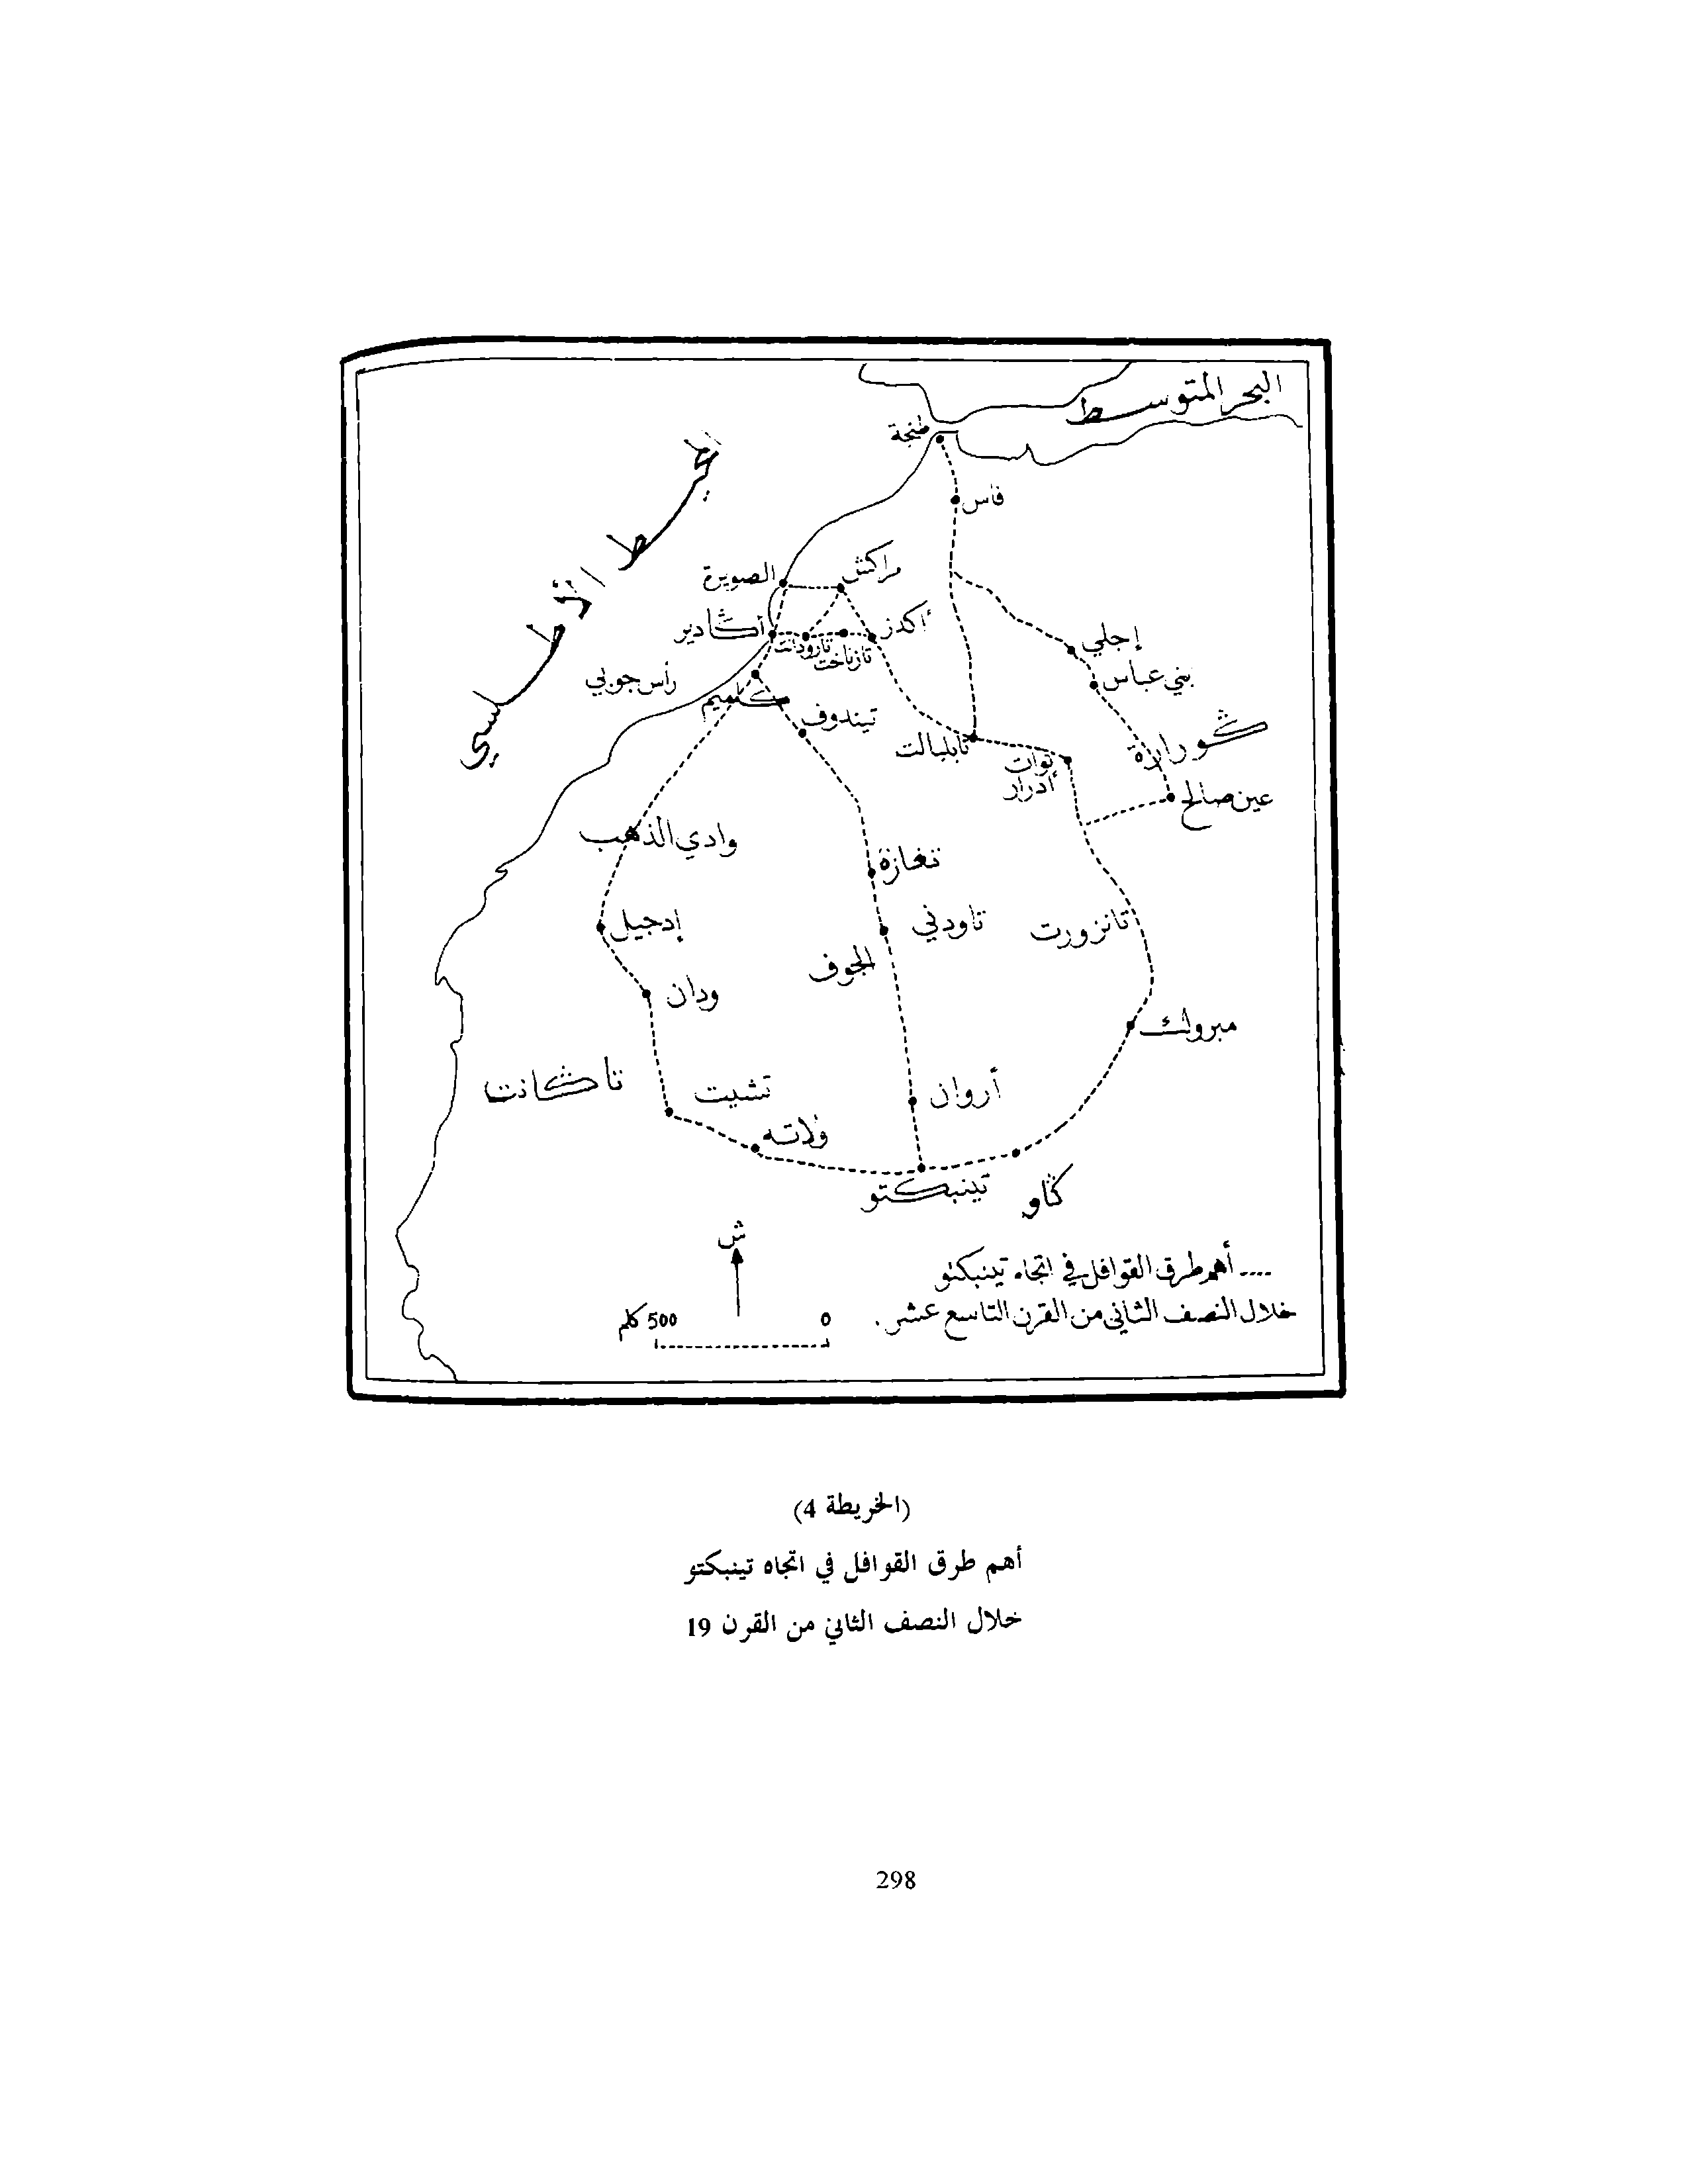 البحر المتوسط
المحيط الأطلسي
طنجة
فاس
مراكش
الصويرة
أكدز
أڭادير
تارودانت
تازناخت
إجلي
رأس جوبي
بني عباس
ڭلميم
تيندوف
ڭورارة
تابلبالت
توات
أدرار
عين صالح
وادي الذهب
تغازة
إدجيل
تاودني
تانزورت
الجوف
ودان
مبروك
تاڭانت
تشيت
أروان
ولاته
تينبكتو
ڭاو
ش
.... أهم طرق القوافل في اتجاه تينبكتو
خلال النصف الثاني من القرن التاسع عشر.
0 500 كلم
(الخريطة 4)
أهم طرق القوافل في اتجاه تينبكتو
خلال النصف الثاني من القرن 19
298